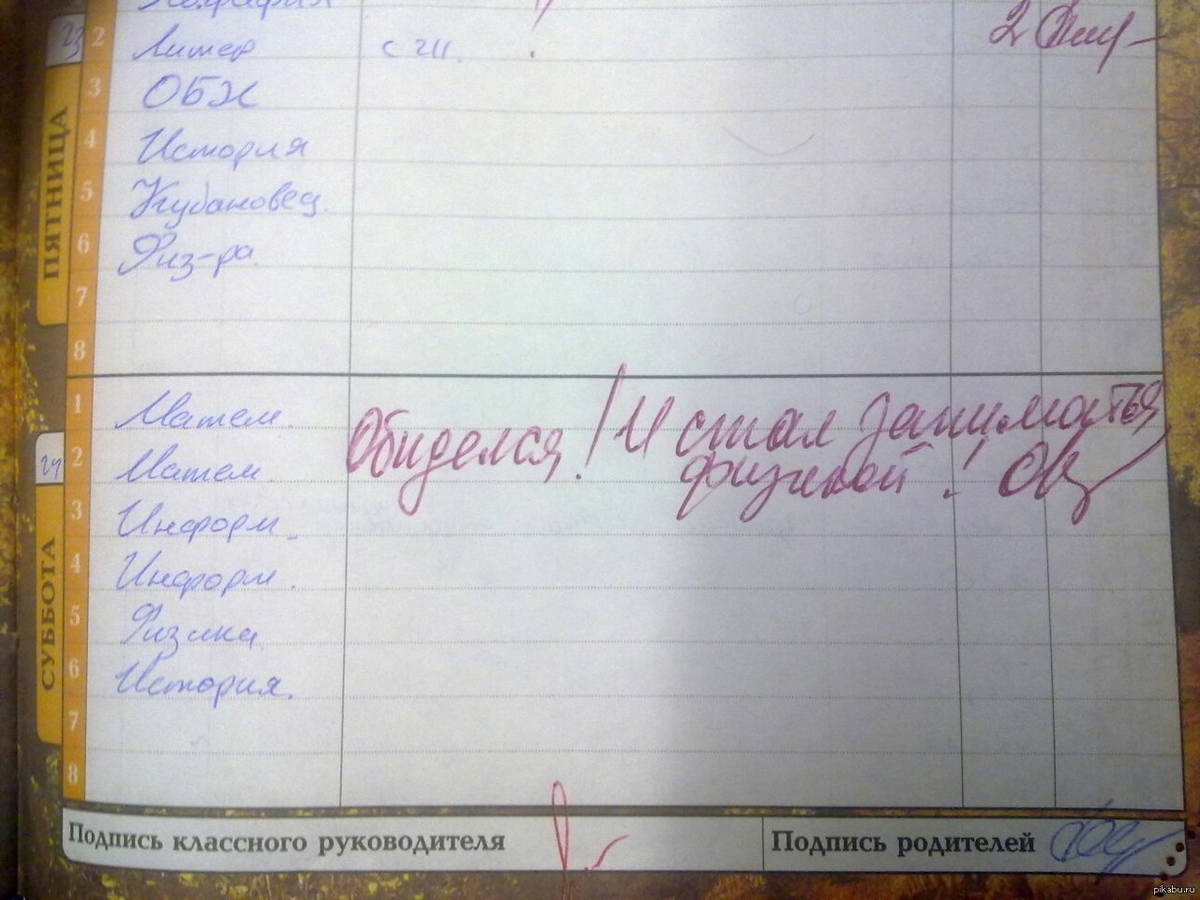 География
23
2 Литер с 211. 2
3 ОБЖ
4 История
5 Кубановед.
6 Физ-ра.
7
8
ПЯТНИЦА
1 Матем. Обиделся! И стал заниматься
24
2 Матем. физикой!
3 Информ.
4 Информ.
5 Физика
6 История.
7
8
СУББОТА
Подпись классного руководителя Подпись родителей
pikabu.ru